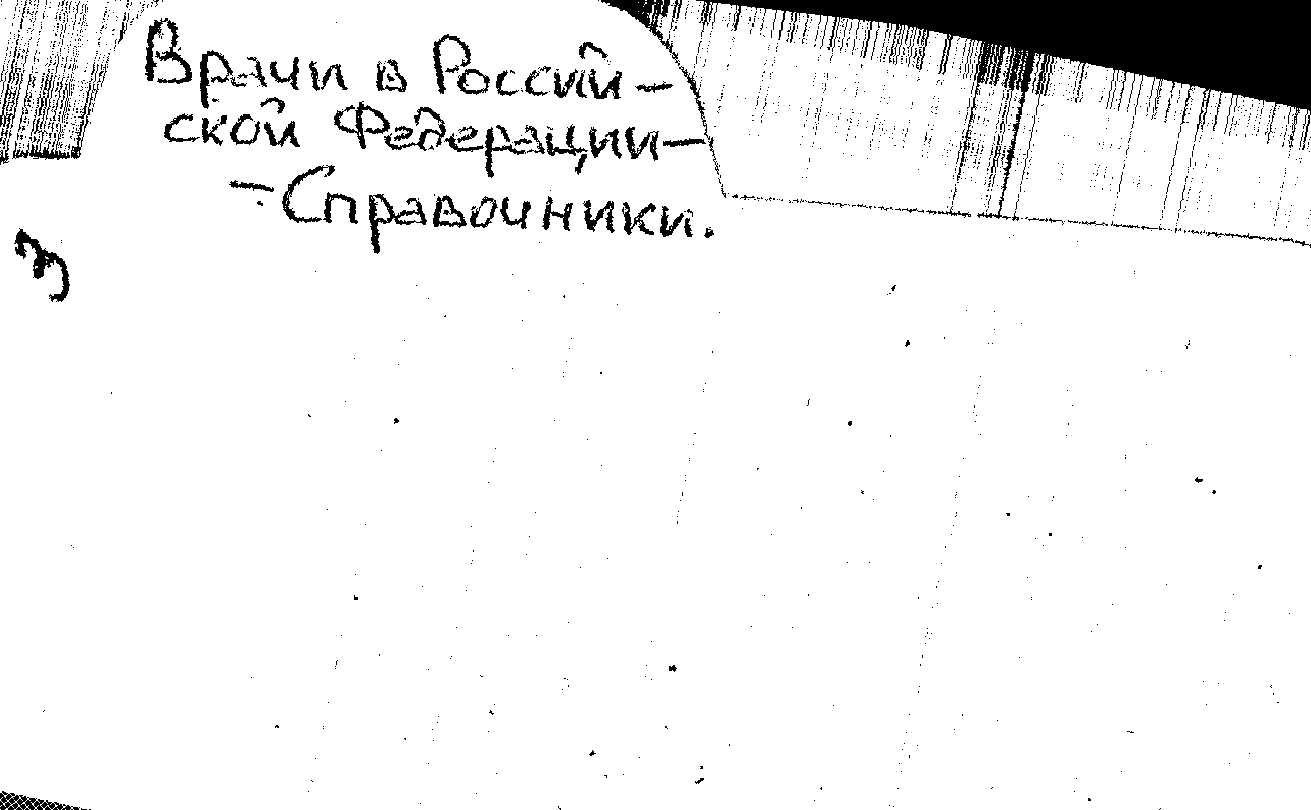 Врачи в Россий-
ской Федерации-
-Справочники.